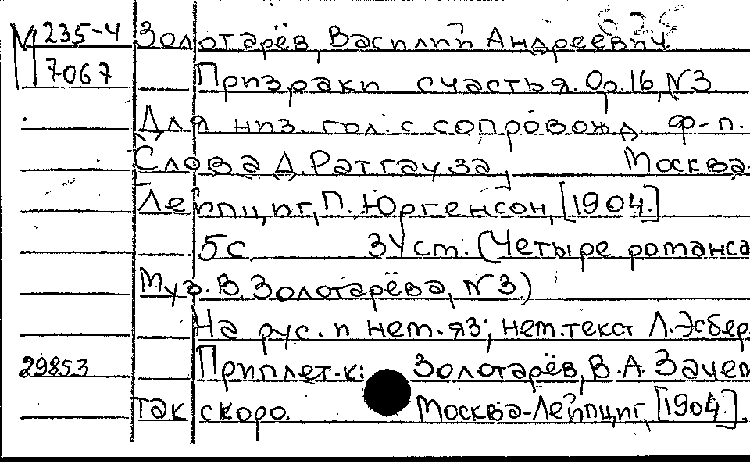 М 235-4 Золотарёв, Василий Андреевич
7067 Призраки счастья. Op. 16, N3
Для низ. гол. с сопровожд. ф-п.
Слова Д. Ратгауза, Москва-
Лейпциг, П. Юргенсон, [1904.]
5с. 34 ст. (Четыре романса
Муз. В. Золотарёва, N3)
На рус. и нем. яз; нем. текст Л. Эсбер
29853 Приплет. к: Золотарёв, В. А. Зачем
так скоро. Москва-Лейпциг, [1904].